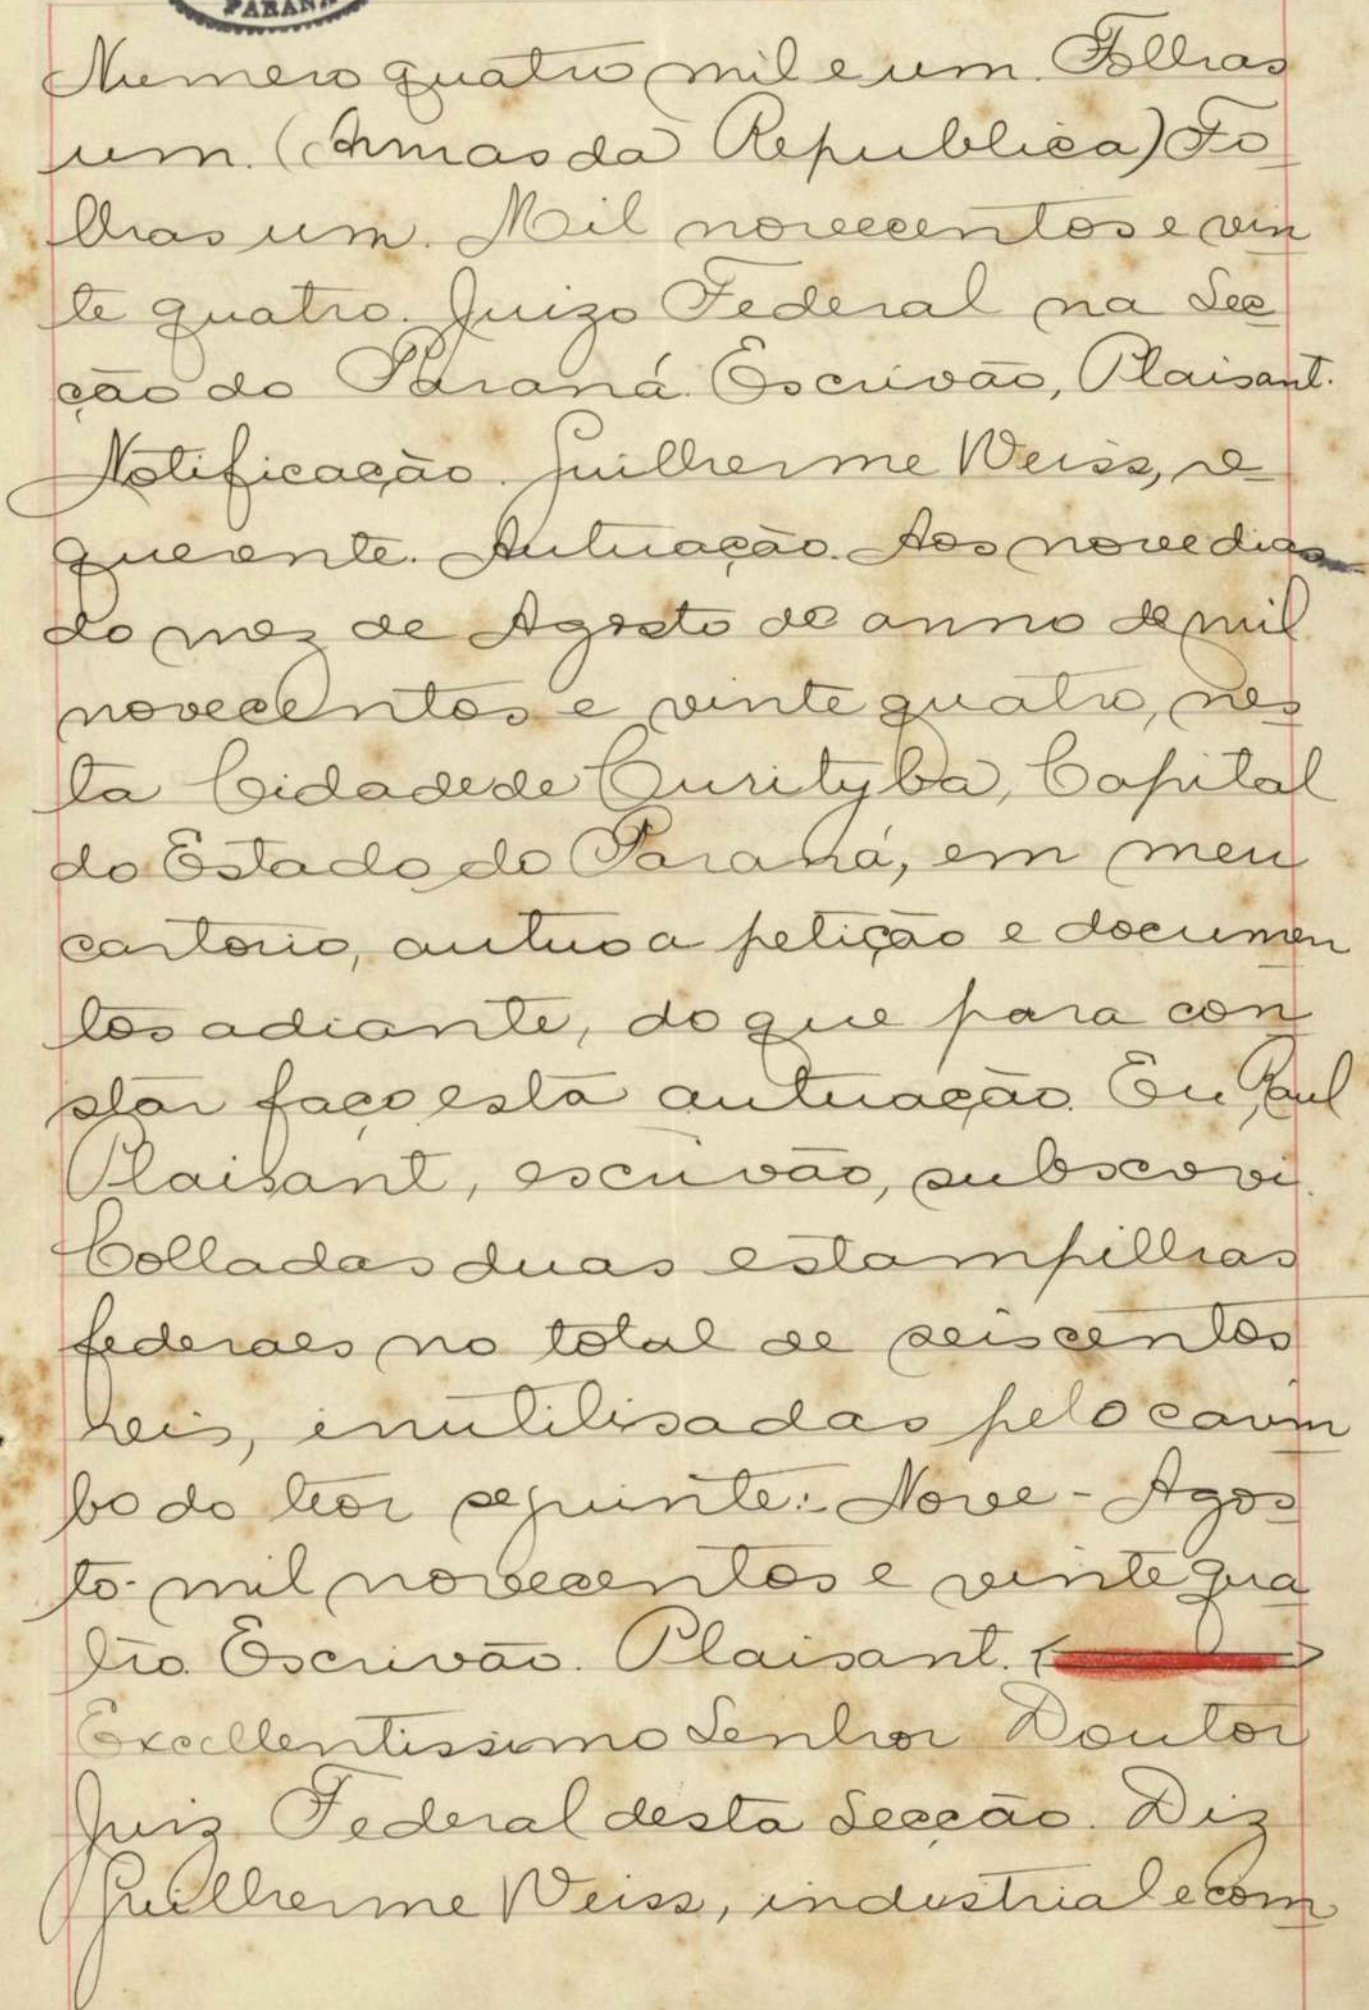 PARANÁ
Numero quatro mil e um. Folhas
um. (Armas da Republica) Fo
lhas um. Mil novecentos e vin
te quatro. Juizo Federal na Sec
ção do Paraná. Escrivão, Plaisant.
Notificação. Guilherme Weiss, re
querente. Autuação. Aos nove dias
do mez de Agosto de anno de mil
novecentos e vinte quatro, nes
ta Cidade de Curityba, Capital
do Estado do Paraná, em meu
cartorio, autuo a petição e documen
tos adiante, do que para con
star faço esta autuação. Eu, Raul
Plaisant, escrivão, subscrevi.
Colladas duas estampilhas
federaes no total de seiscentos
reis, inutilisadas pelo carim
bo do teor seguinte: Nove - Agos
to - mil novecentos e vinte qua
tro. Escrivão. Plaisant.
Excellentissimo Senhor Doutor
Juiz Federal desta Secção. Diz
Guilherme Weiss, industrial e com